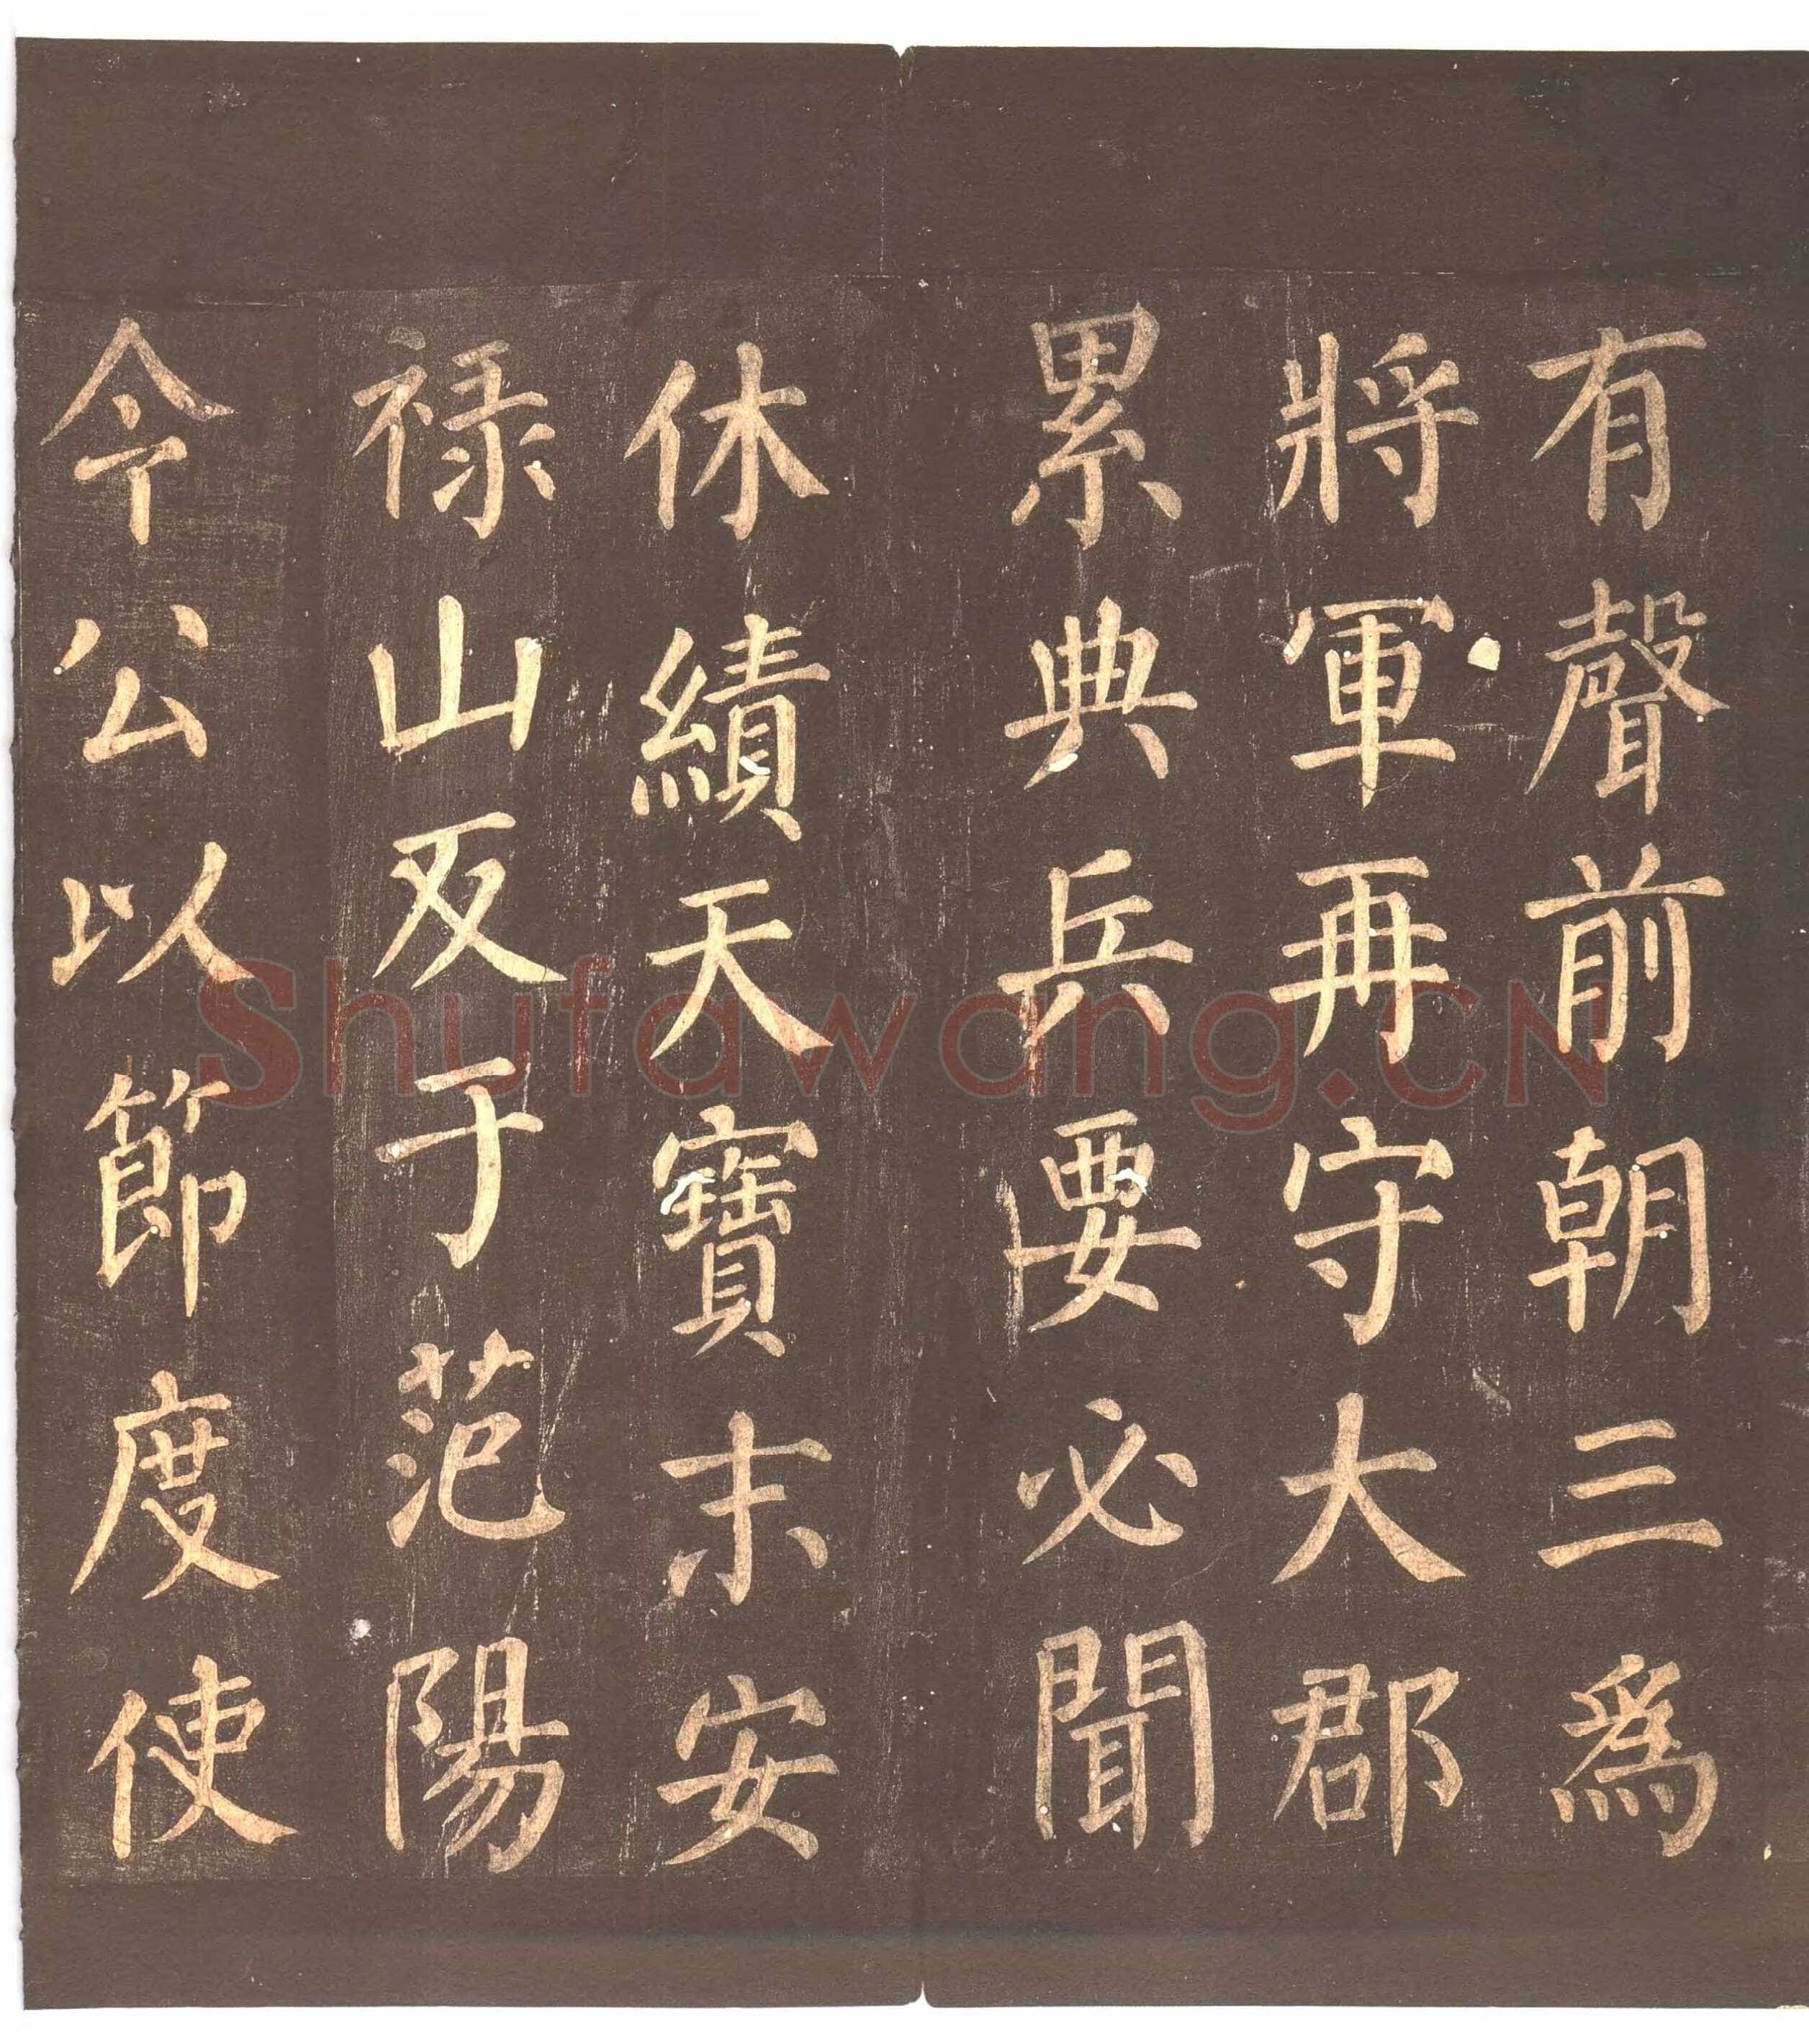 有聲前朝三爲
將軍再守大郡
累典兵要必聞
休績天寶末安
禄山反于范陽
令公以節度使
Shufawang.CN